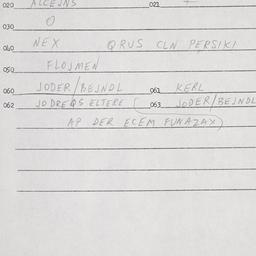 020 ALCEJNS 021
030 O
040 NEX QRUS CLN PERSIKI
050 FLOJMEN
060 JODER/BEJNDL 061 KERL
062 JODREQS ELTERE ( 063 JODER/BEJNDL
AP DER ECEM FUNAZAX)